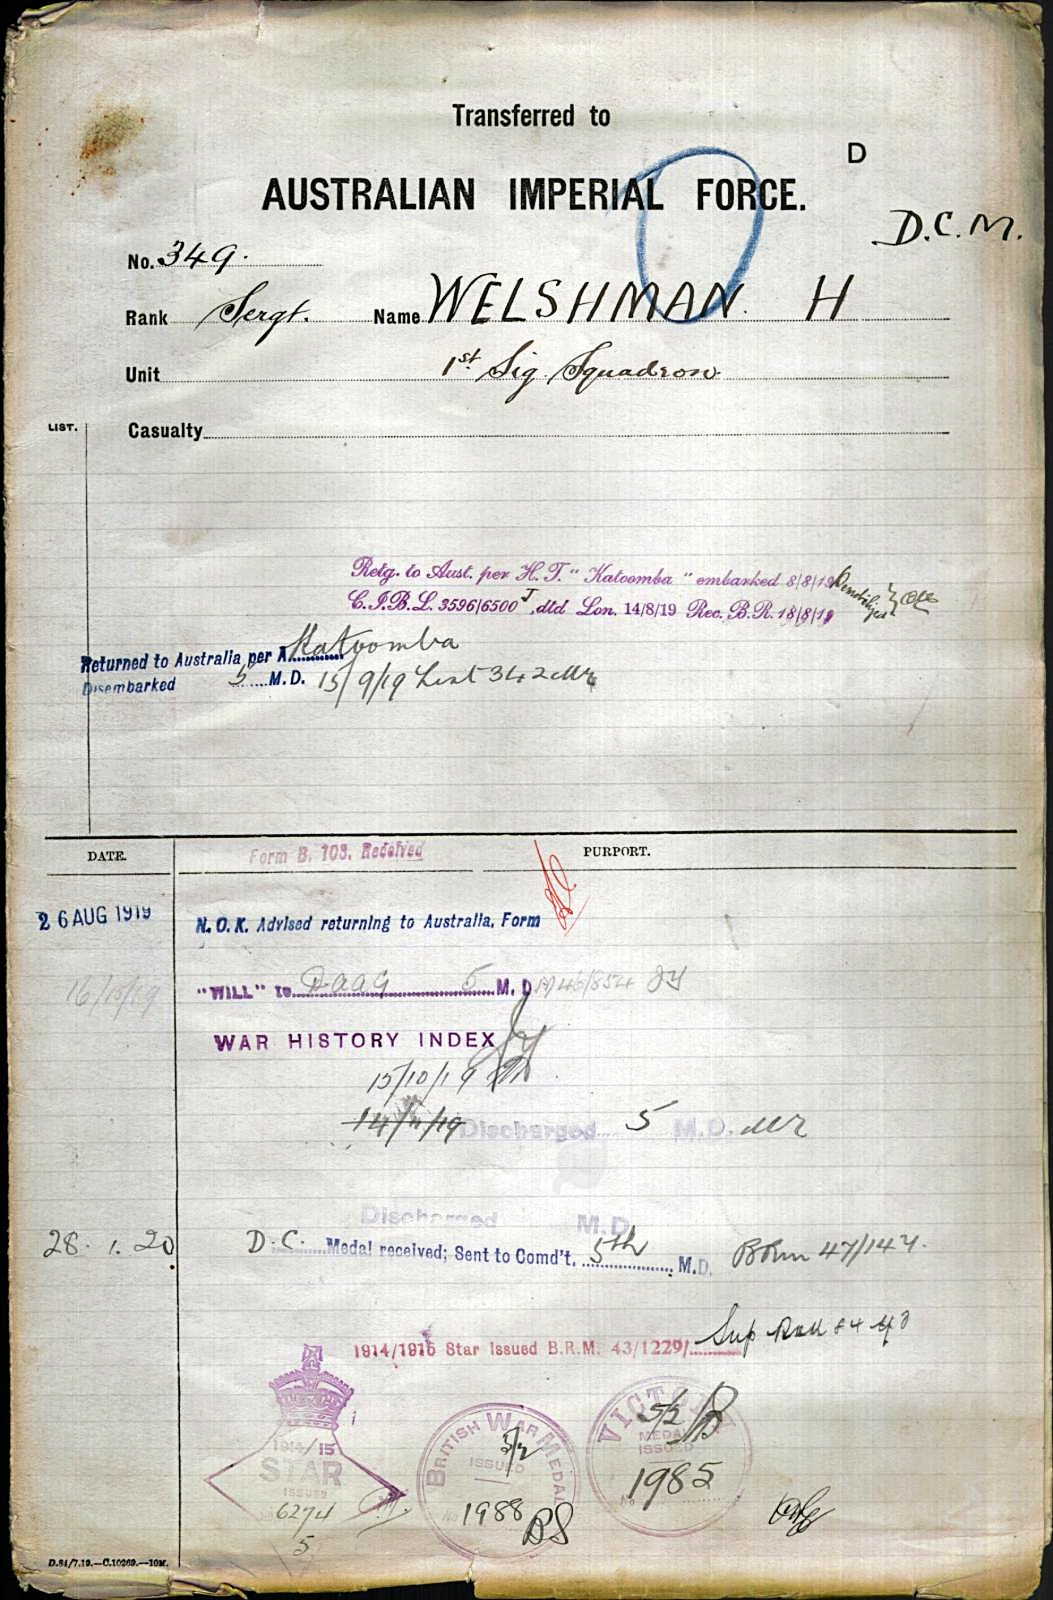 Transferred to
D
AUSTRALIAN IMPERIAL FORCE.
D.C.M.
No. 349.
Rank Sergt. Name WELSHMAN. H
Unit 1st Sig. Squadron.
LIST.
Casualty
Retg. to Aust. per H.T. "Katoomba" embarked 8/8/19 Demobilized
C.I.B.L. 3596/6500 J, dtd Lon. 14/8/19 Rec. B.R. 18/8/19
Returned to Australia per A Katoomba
Disembarked 5 M.D. 15/9/19 List 342
DATE. Form B. 103. Received PURPORT.
26 AUG 1919 N.O.K. Advised returning to Australia. Form
16/10/19 "WILL" to DAAG 5 M.D.
WAR HISTORY INDEX
15/10/19
14/11/19 Discharged 5 M.D.
Discharged M.D.
28. 1. 20 D.C. Medal received; Sent to Comd't. 5th M.D. 47/147.
1914/1915 Star Issued B.R.M. 43/1229/ Sup Roll
1914/15
STAR
ISSUED
6274
5
BRITISH WAR MEDAL
ISSUED
5/2
No 1988
VICTORY
MEDAL
ISSUED
5/2
No 1985
D.84/7.19.—C.10269.—10M.